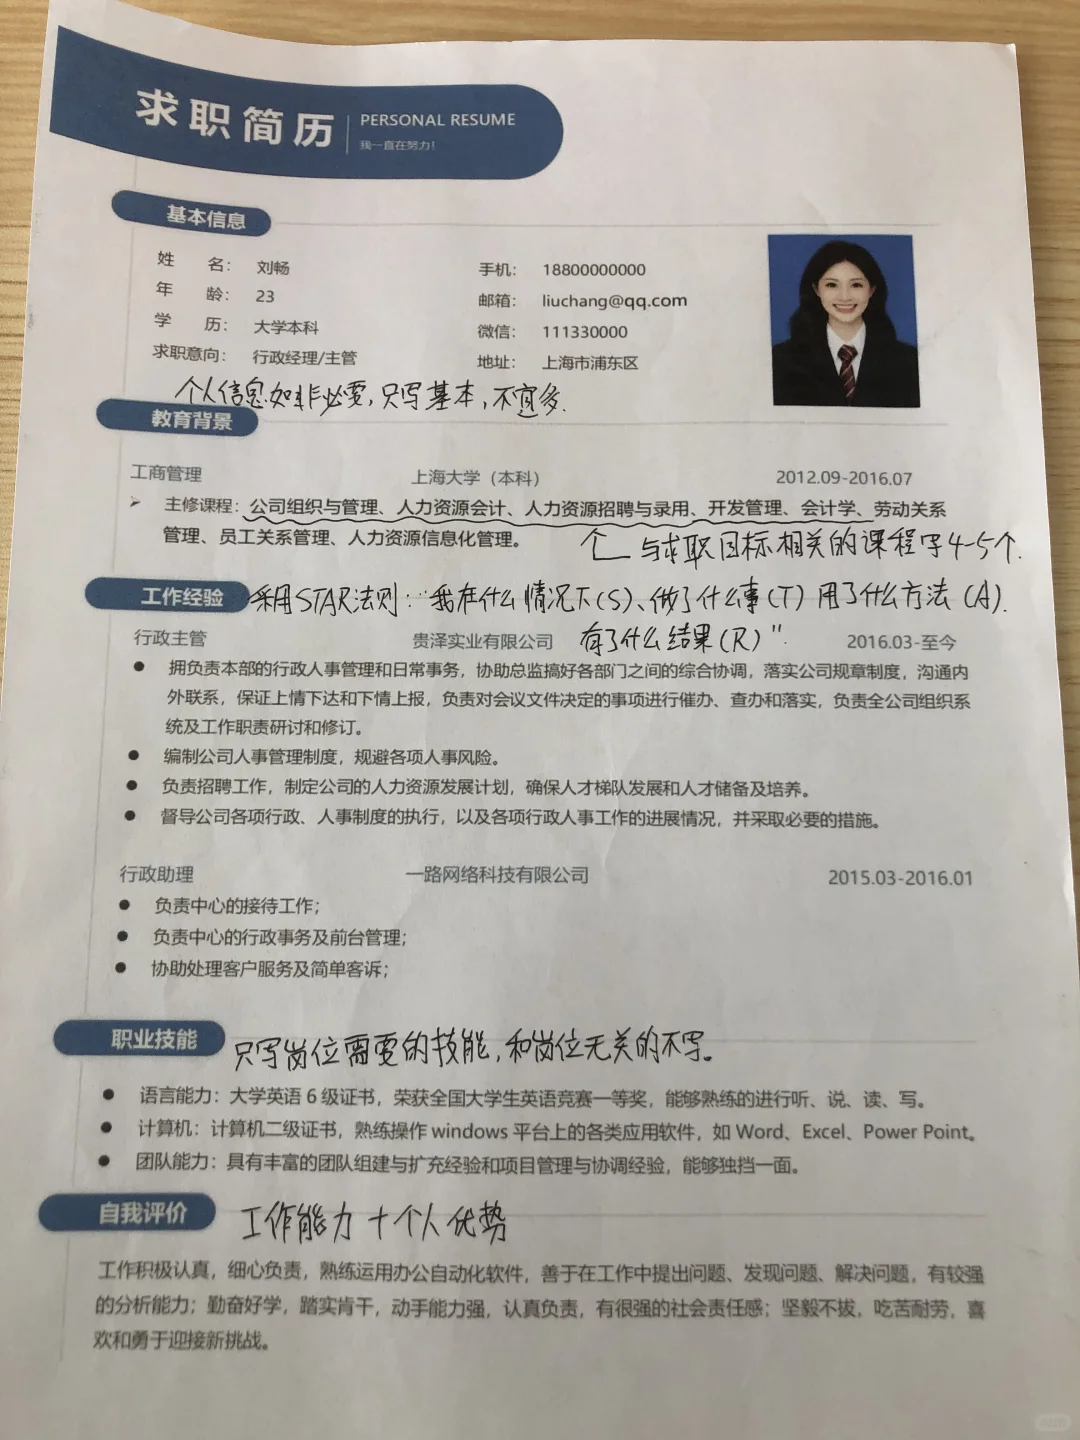 求职简历
PERSONAL RESUME
我一直在努力!
基本信息
姓 名： 刘畅
手机： 18800000000
年 龄： 23
邮箱： liuchang@qq.com
学 历： 大学本科
微信： 111330000
求职意向： 行政经理/主管
地址： 上海市浦东区
个人信息如非必要,只写基本,不宜多.
教育背景
工商管理 上海大学（本科） 2012.09-2016.07
主修课程：公司组织与管理、人力资源会计、人力资源招聘与录用、开发管理、会计学、劳动关系
管理、员工关系管理、人力资源信息化管理。
与求职目标相关的课程写4-5个.
工作经验
采用STAR法则："我在什么情况下(S)、做了什么事(T) 用了什么方法(A).
有了什么结果(R)".
行政主管 贵泽实业有限公司 2016.03-至今
拥负责本部的行政人事管理和日常事务，协助总监搞好各部门之间的综合协调，落实公司规章制度，沟通内
外联系，保证上情下达和下情上报，负责对会议文件决定的事项进行催办、查办和落实，负责全公司组织系
统及工作职责研讨和修订。
编制公司人事管理制度，规避各项人事风险。
负责招聘工作，制定公司的人力资源发展计划，确保人才梯队发展和人才储备及培养。
督导公司各项行政、人事制度的执行，以及各项行政人事工作的进展情况，并采取必要的措施。
行政助理 一路网络科技有限公司 2015.03-2016.01
负责中心的接待工作；
负责中心的行政事务及前台管理；
协助处理客户服务及简单客诉；
职业技能
只写岗位需要的技能,和岗位无关的不写。
语言能力：大学英语 6 级证书，荣获全国大学生英语竞赛一等奖，能够熟练的进行听、说、读、写。
计算机：计算机二级证书，熟练操作 windows 平台上的各类应用软件，如 Word、Excel、Power Point。
团队能力：具有丰富的团队组建与扩充经验和项目管理与协调经验，能够独挡一面。
自我评价
工作能力＋个人优势
工作积极认真，细心负责，熟练运用办公自动化软件，善于在工作中提出问题、发现问题、解决问题，有较强
的分析能力；勤奋好学，踏实肯干，动手能力强，认真负责，有很强的社会责任感；坚毅不拔，吃苦耐劳，喜
欢和勇于迎接新挑战。